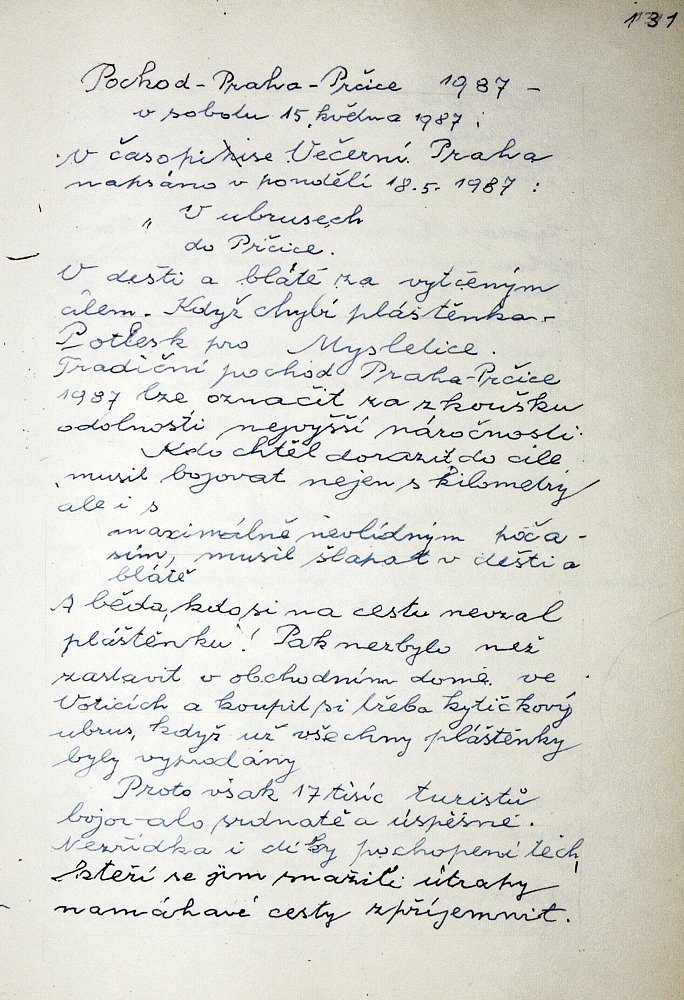 131
Pochod - Praha - Prčice 1987 -
v sobotu 15. května 1987 :
V časopise Večerní Praha
napsáno v pondělí 18.5. 1987 :
" V ubrusech
do Prčice.
V dešti a blátě za vytčeným
cílem. Když chybí pláštěnka -
Potlesk pro Mysletice.
Tradiční pochod Praha-Prčice
1987 lze označit za zkoušku
odolnosti nejvyšší náročnosti.
Kdo chtěl dorazit do cíle
musil bojovat nejen s kilometry
ale i s
maximálně nevlídným poča-
sím, musil šlapat v dešti a
blátě
A běda, kdo si na cestu nevzal
pláštěnku! Pak nezbylo než
zastavit v obchodním domě ve
Voticích a koupit si třeba kytičkový
ubrus, když už všechny pláštěnky
byly vyprodány
Proto však 17 tisíc turistů
bojovalo srdnatě a úspěšně.
Nezřídka i díky pochopení těch,
kteří se jim snažili útrapy
namáhavé cesty zpříjemnit.